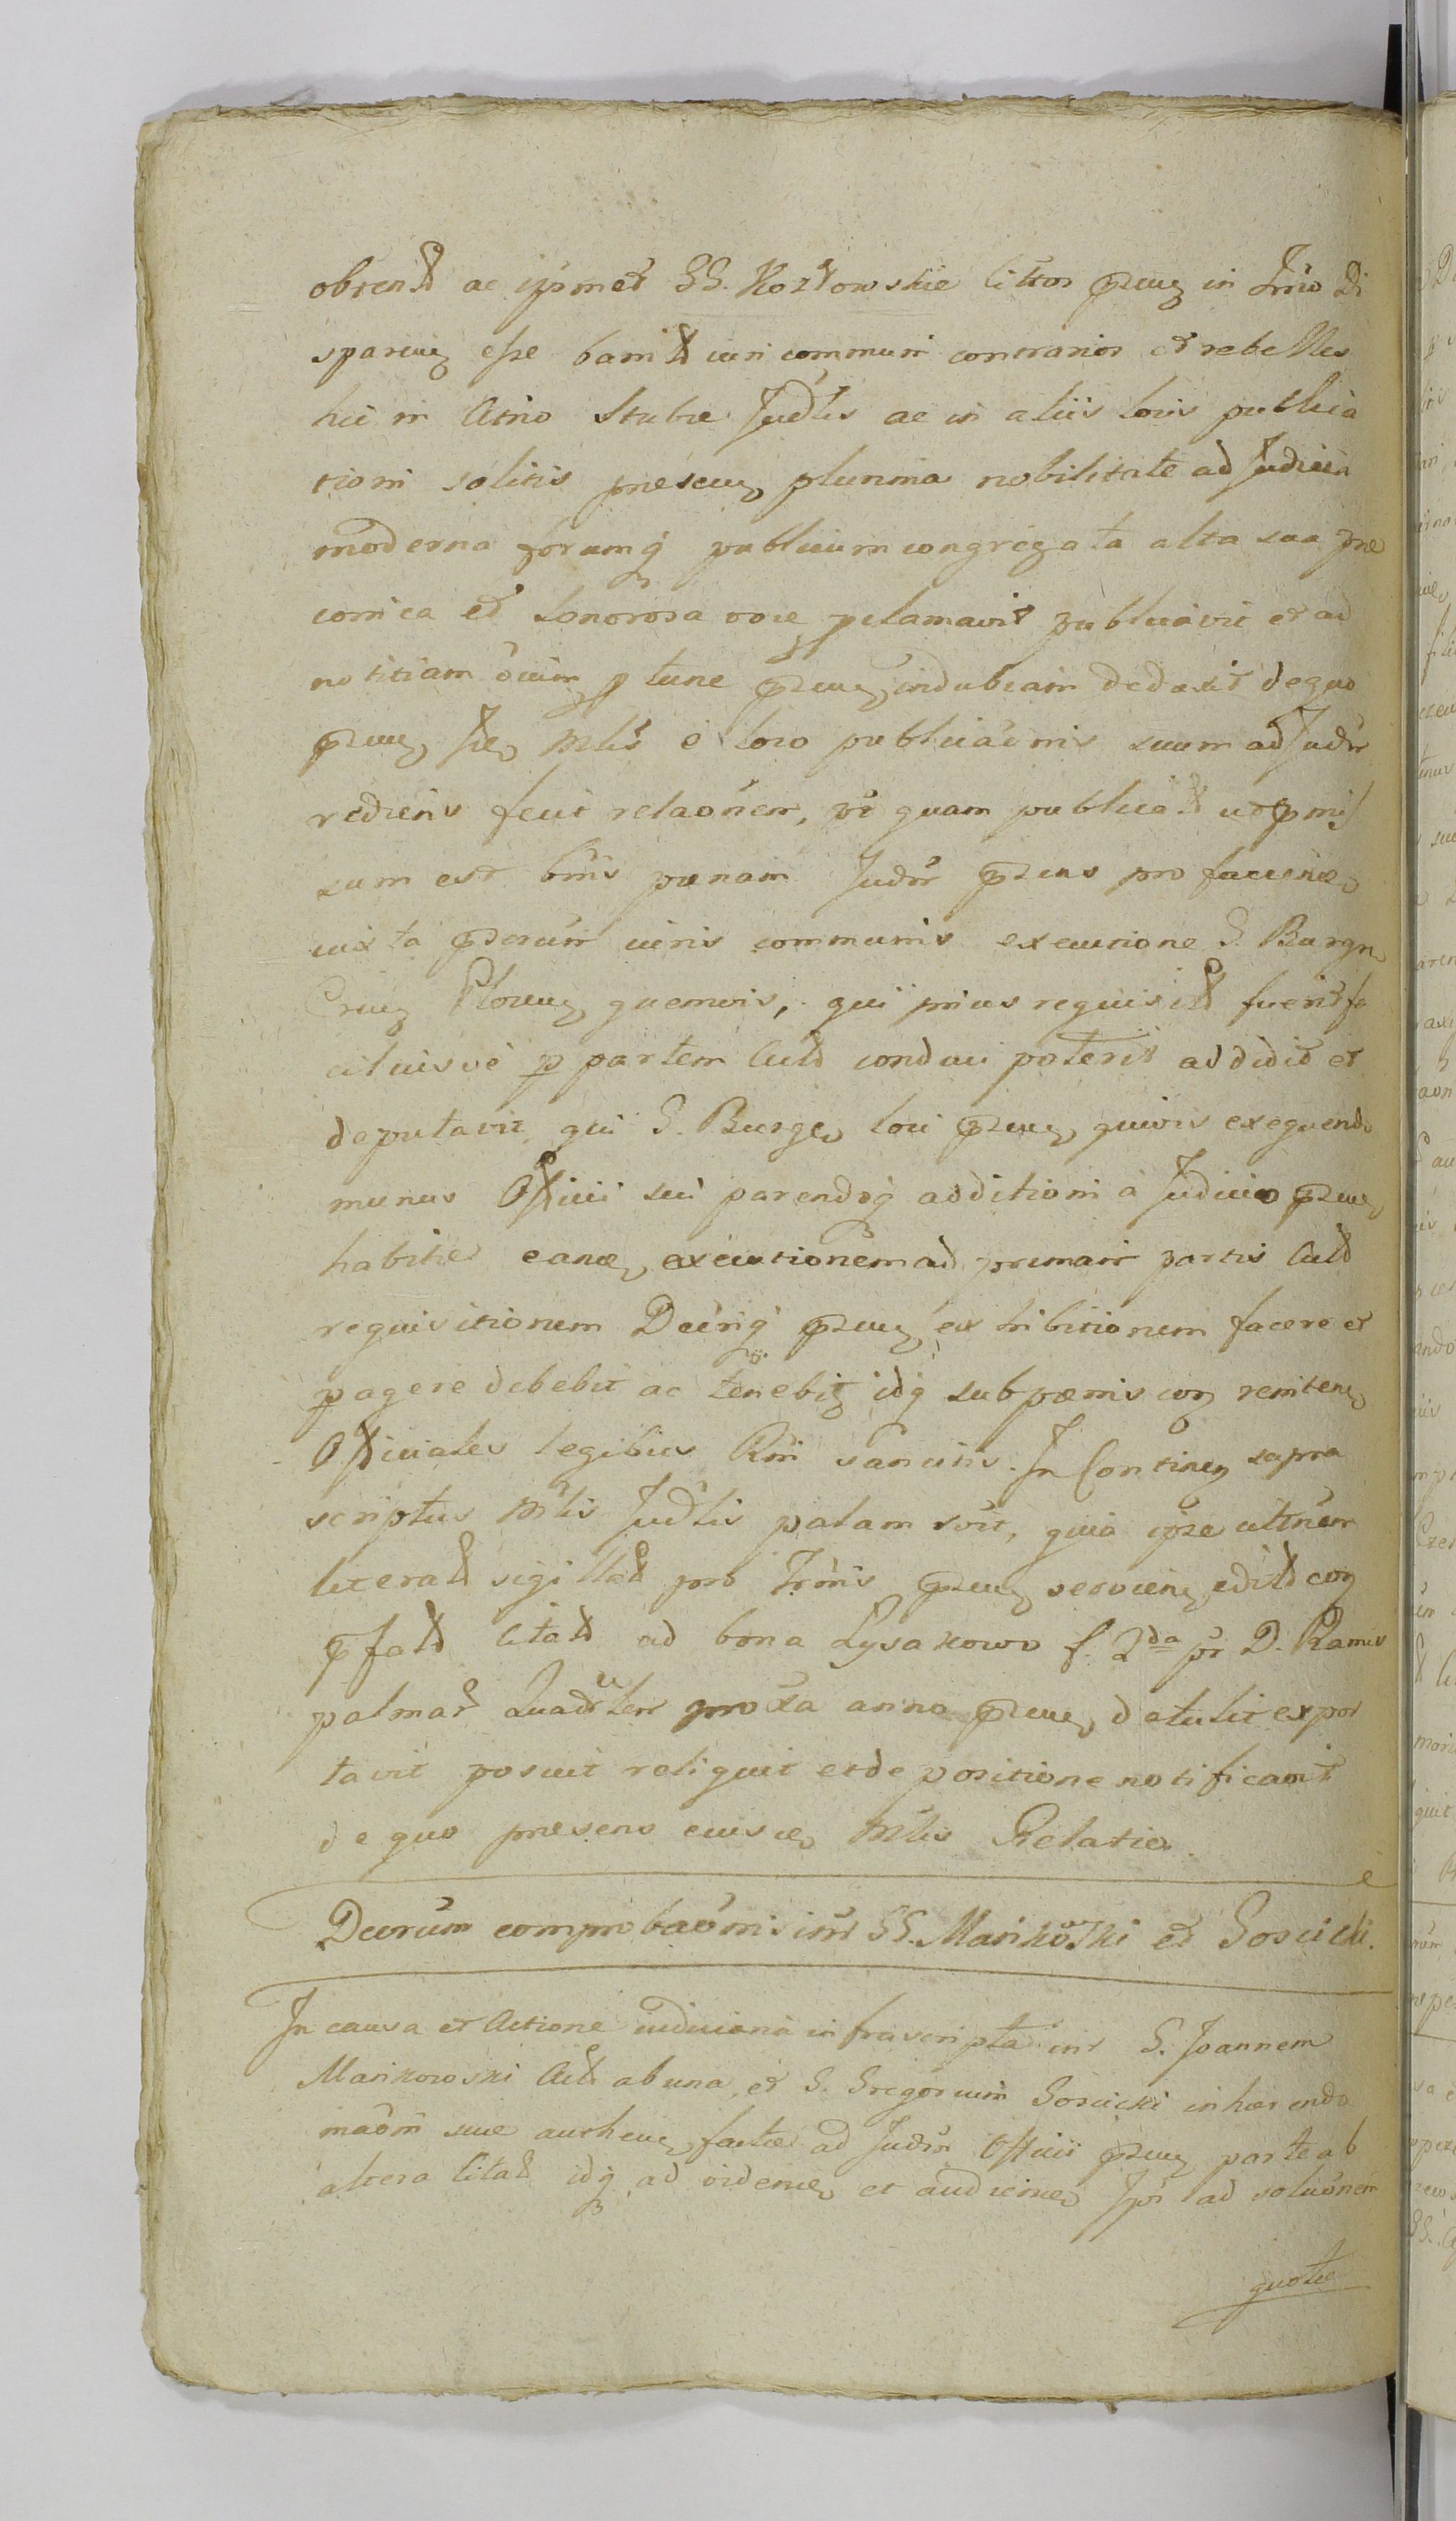 obtent ac ipsmet GG. Kozłowskie cittos pnus in Trno Di
sparens esse banit iuri communi contrarios et rebelles
hic in Atrio Stubæ Judlis ac in aliis locis publica
tioni solitis præsens plurima nobilitate ad Judicia
moderna forumq publicum congregata alta sua præ
conica et sonorosa voce pclamavit publicavit et ad
notitiam oium p tunc pnus indubiam deduxit de quo
pnus Mlis e loco publicaonis suum ad Judm
rediens fecit relaonem, pt quam publicat ut pmis
sum est bnis pænam Judm pnus pro faciend
iuxta pscrum iuris communis executione G. Burgr
Crus Plocens quemvis, qui prius requisit fuerit fa
ciliusve p partem Actd conduci poterit addidit et
deputavit qui G. Burgr loci pnus quivis exequendo
munus Officii sui parendoq additioni a Judicio pnus
habitæ eand executionem ad primam partis Actd
requisitionem Decriq pnus exhibitionem facere et
pagere debebit ac tenebit idq sub pænis con reniten
Officiales legibus Rni sancitis. In Continen supra
scriptus Mlis Judlis palam rvit, quia ipse ultnum
literat sigillat pro Trmis pnus servien edit con
pfat citat ad bona Łysakowo f. 2da pt D. Ramis
palmar Quadrlem proxa anno pnus detulit expor
tavit posuit reliquit et de positione notificavit
de quo præsens eiusd Mlis Relatio.
Decrum comprobaonis int GG. Mankowski et Gosicki.
In causa et Actione iudiciaria infrascripta int G. Joannem
Mankowski Actd ab una et G. Gregorium Gosicki inhærendo
maom suæ authen factæ ad Judm Officii pnus parte ab
altera Citat idq ad vidend et audiend Ipi ad soluonem
quotæ